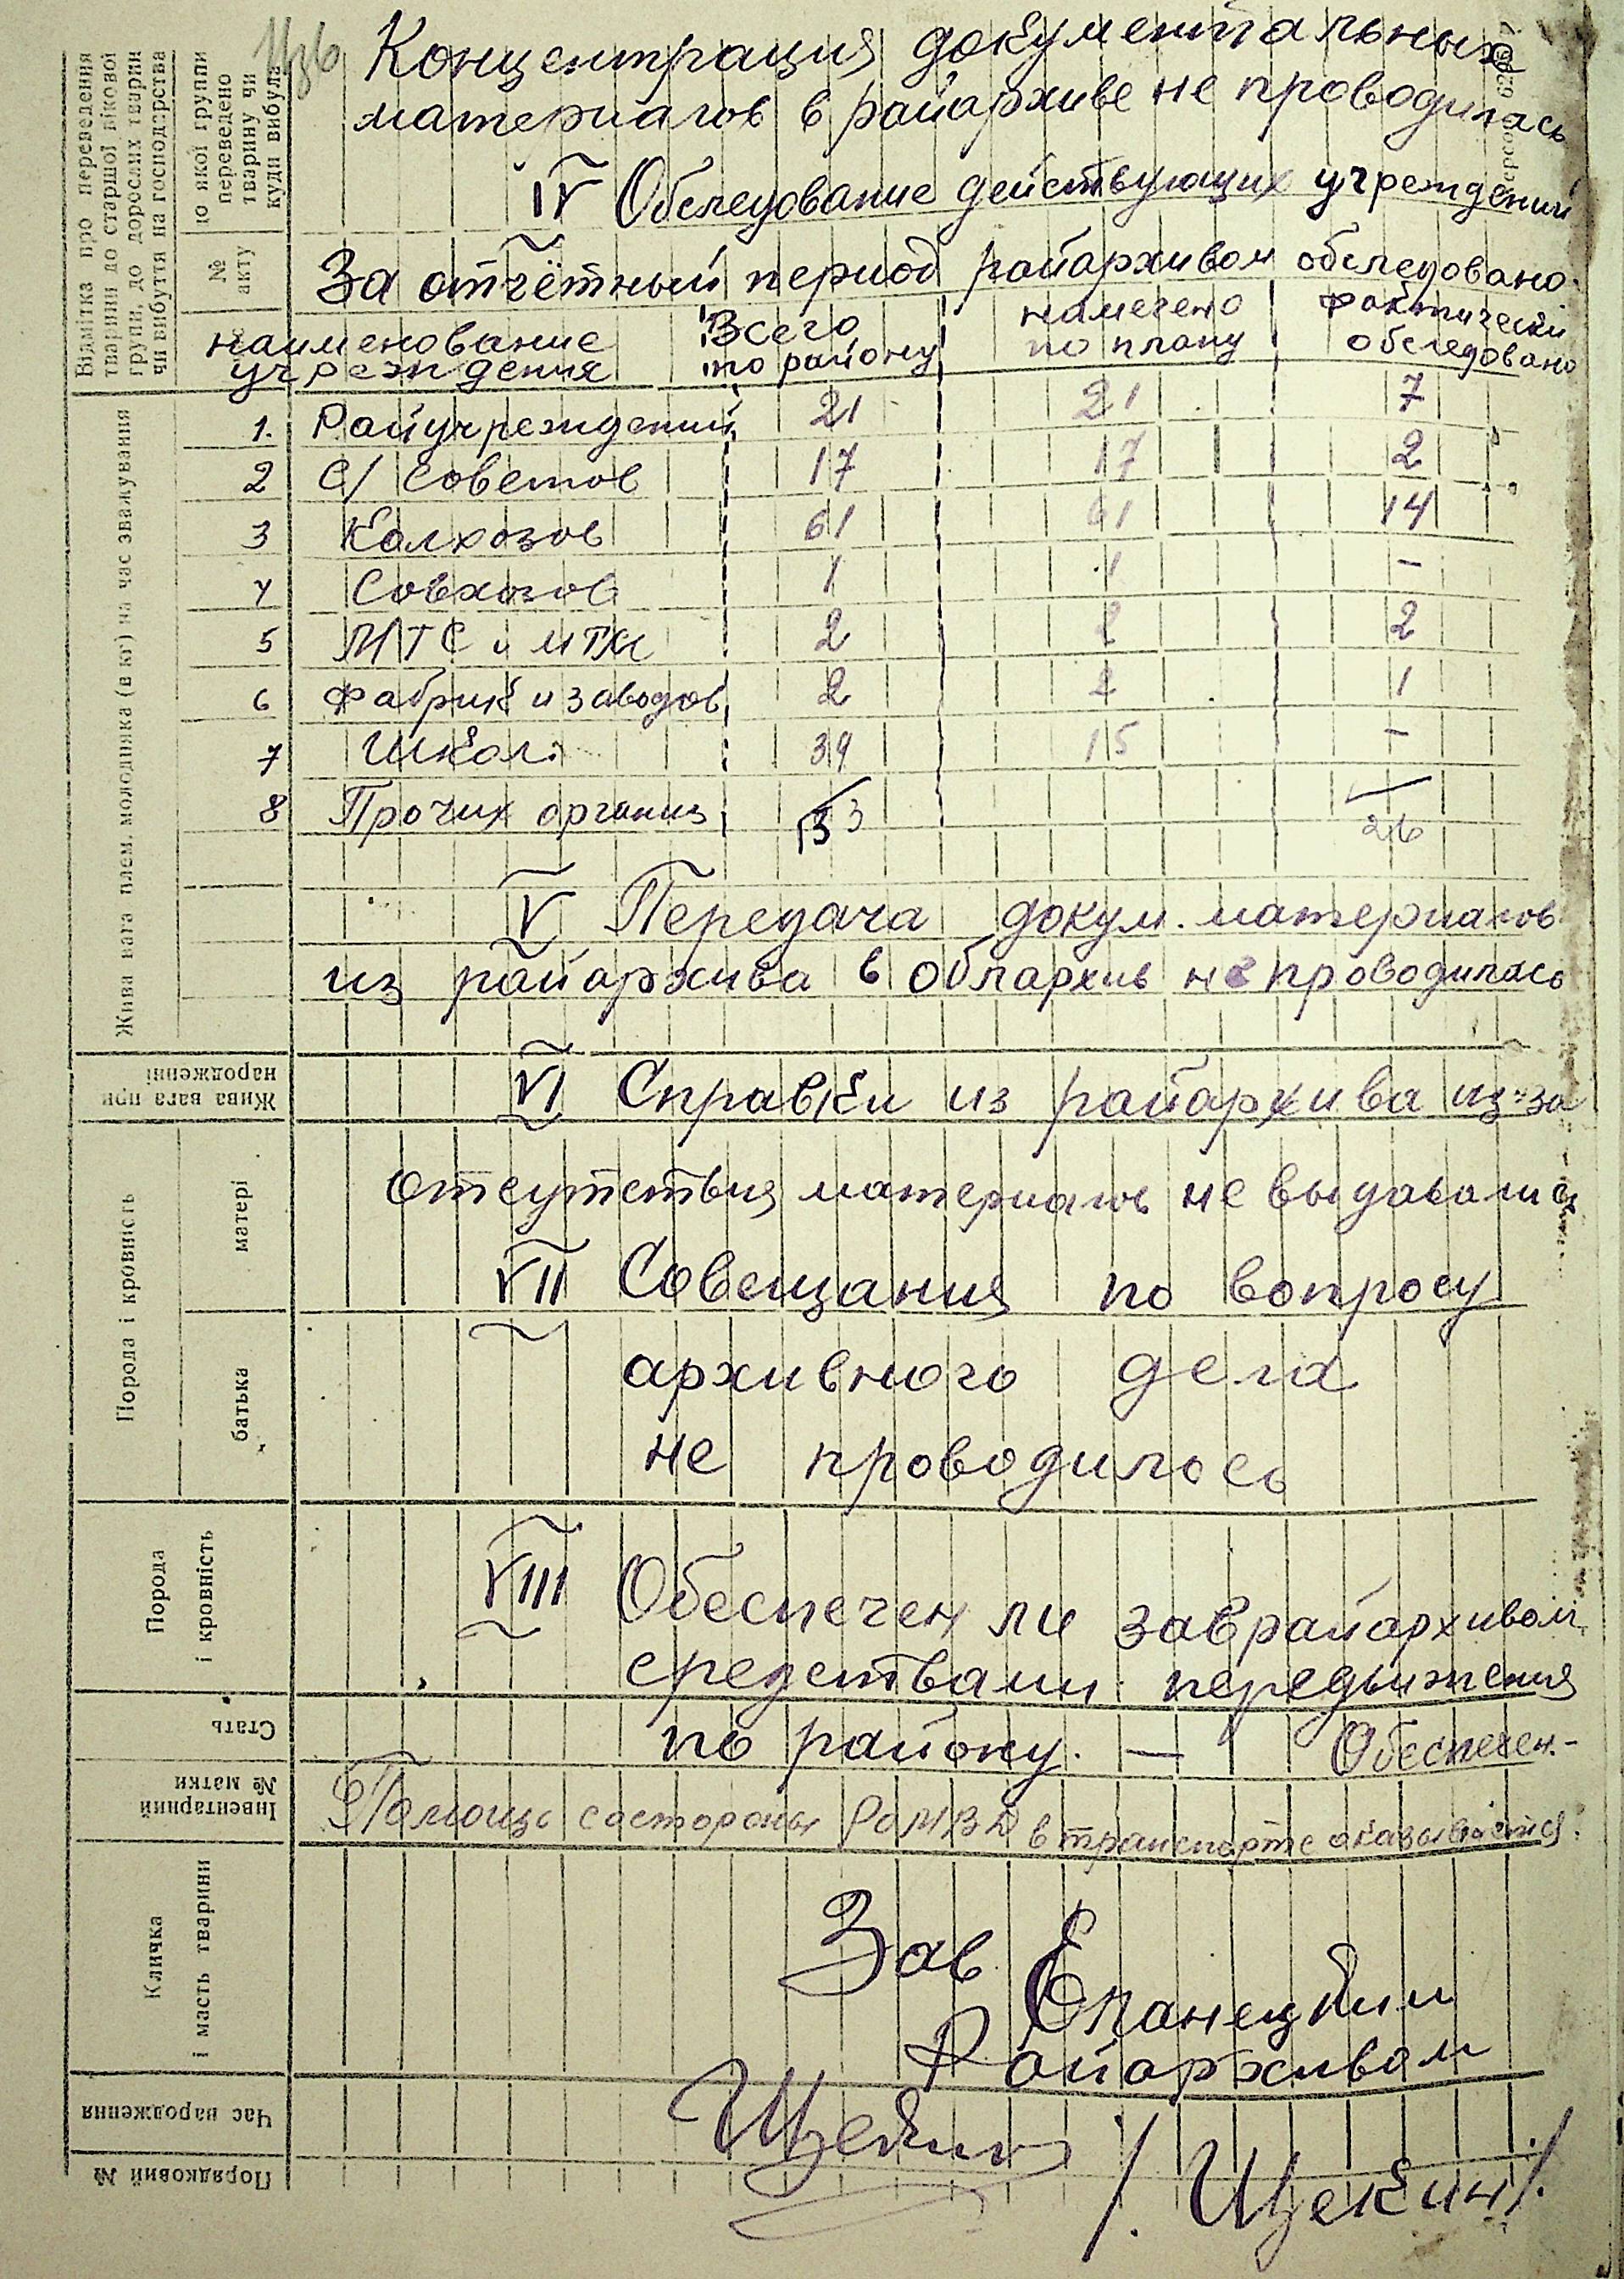 Концентрация документальных
материалов в райархиве не проводилась
IV Обследование действующих учреждений
За отчётный период райархивом обследовано.
наименование учреждения | Всего по району | намечено по плану | фактически обследовано
1. Райучреждений 21 21 7
2 С/Советов 17 17 2
3 Колхозов 61 61 14
4 Совхозов 1 1 –
5 МТС и МТМ 2 2 2
6 Фабрик и заводов 2 2 1
7 Школ. 39 15 –
8 Прочих организ 26
V Передача докум. материалов
из райархива в облархив не проводилась
VI Справки из райархива из-за
отсутствия материалов не выдавались
VII Совещания по вопросу
архивного дела
не проводилось
VIII Обеспечен ли заврайархивом
средствами передвижения
по району. — Обеспечен.-
Помощь со стороны РОМВД в транспорте оказывается.
Зав Еланецким
Райархивом
Щекин
/. Щекин/.
Відмітка про переведення
тварини до старшої вікової
групи, до дорослих тварин
чи вибуття на господарства
до якої группи
переведено
тварину чи
куди вибула
№
акту
Жива вага плем. молодняка (в кг) на час зважування
Жива вага при
народженні
Порода і кровність
матері
батька
Порода
і кровність
Стать
Інвентарний
№ матки
Кличка
і масть тварини
Час народження
Порядковий №